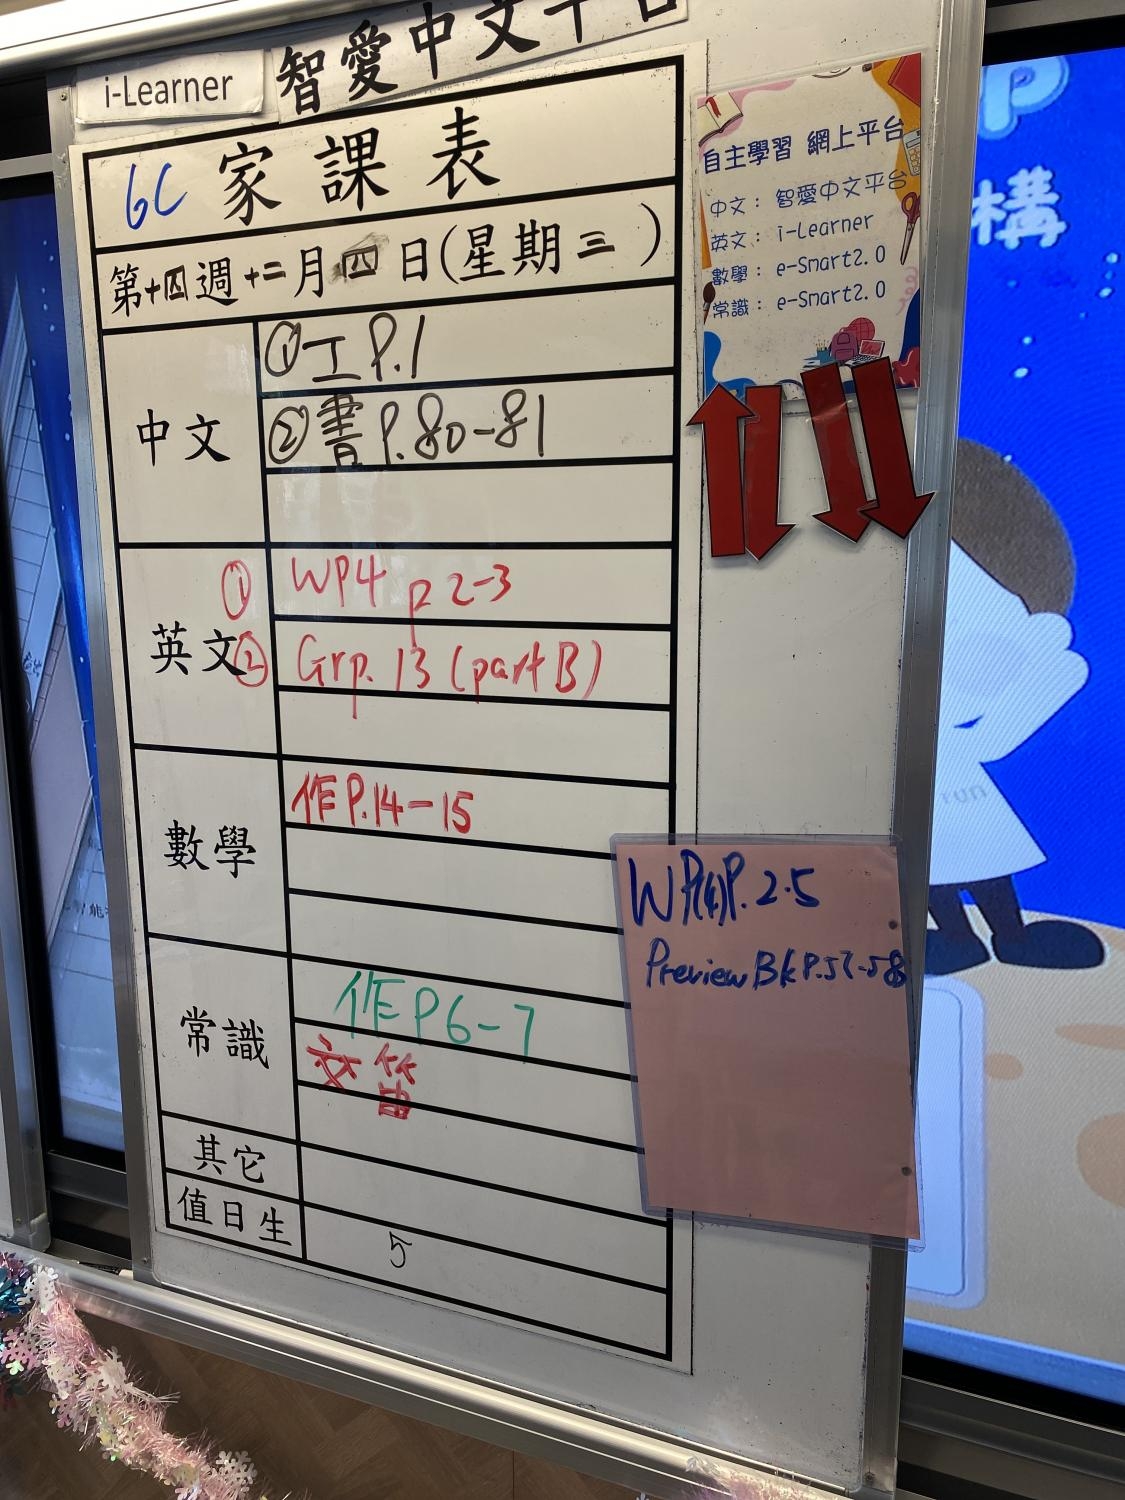 智愛中文平台
i-Learner
6C 家課表
第十四週十二月四日(星期三)
中文
①工 P.1
②書 P.80-81
英文
① WP4 p2-3
② Grp.13 (part B)
數學
作 P.14-15
常識
作 P6-7
交笛
其它
值日生
5
自主學習 網上平台
中文： 智愛中文平台
英文： i-Learner
數學： e-Smart2.0
常識： e-Smart2.0
WP(4)P.2-5
Preview Bk P.57-58
構
run